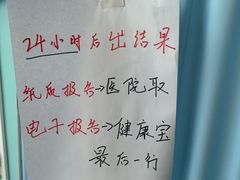 24小时后出结果
纸质报告→医院取
电子报告→健康宝
最后一行